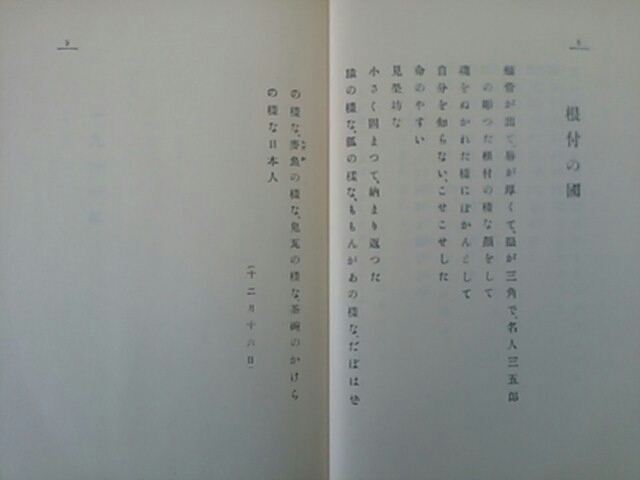 8
根付の國
頰骨が出て、唇が厚くて、眼が三角で、名人三五郎
の彫つた根付の樣な顏をして
魂をぬかれた樣にぽかんとして
自分を知らない、こせこせした
命のやすい
見榮坊な
小さく固まつて、納まり返つた
猿の樣な、狐の樣な、ももんがあの樣な、だぼはぜ
9
の樣な、麥魚の樣な、鬼瓦の樣な、茶碗のかけら
の樣な日本人
(十二月十六日)